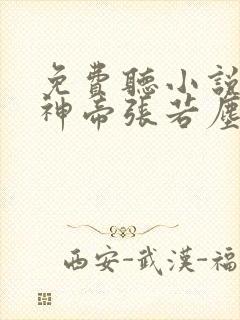 免費聽小說
神帝張若塵
西安-武漢-福